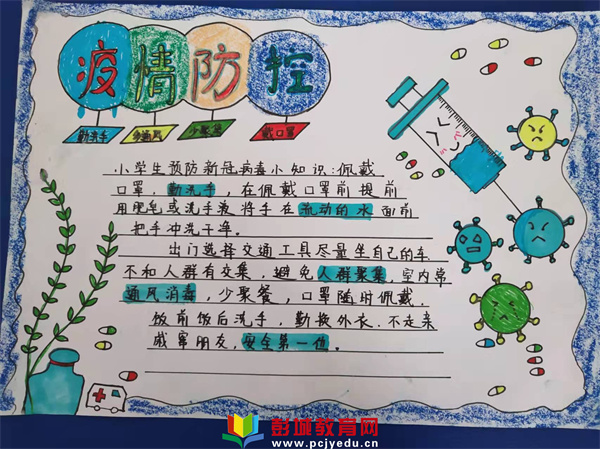 疫情防控
勤洗手 多通风 少聚集 戴口罩
小学生预防新冠病毒小知识:佩戴
口罩,勤洗手,在佩戴口罩前提前
用肥皂或洗手液将手在流动的水面前
把手冲洗干净。
出门选择交通工具尽量坐自己的车
不和人群有交集,避免人群聚集,室内常
通风消毒,少聚餐,口罩随时佩戴,
饭前饭后洗手,勤换外衣,不走亲
戚窜朋友,安全第一位。
彭城教育网
www.pcjyedu.cn